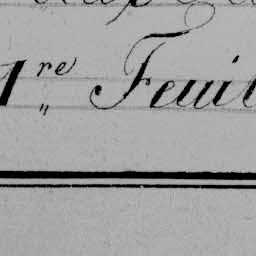 1re Feuil